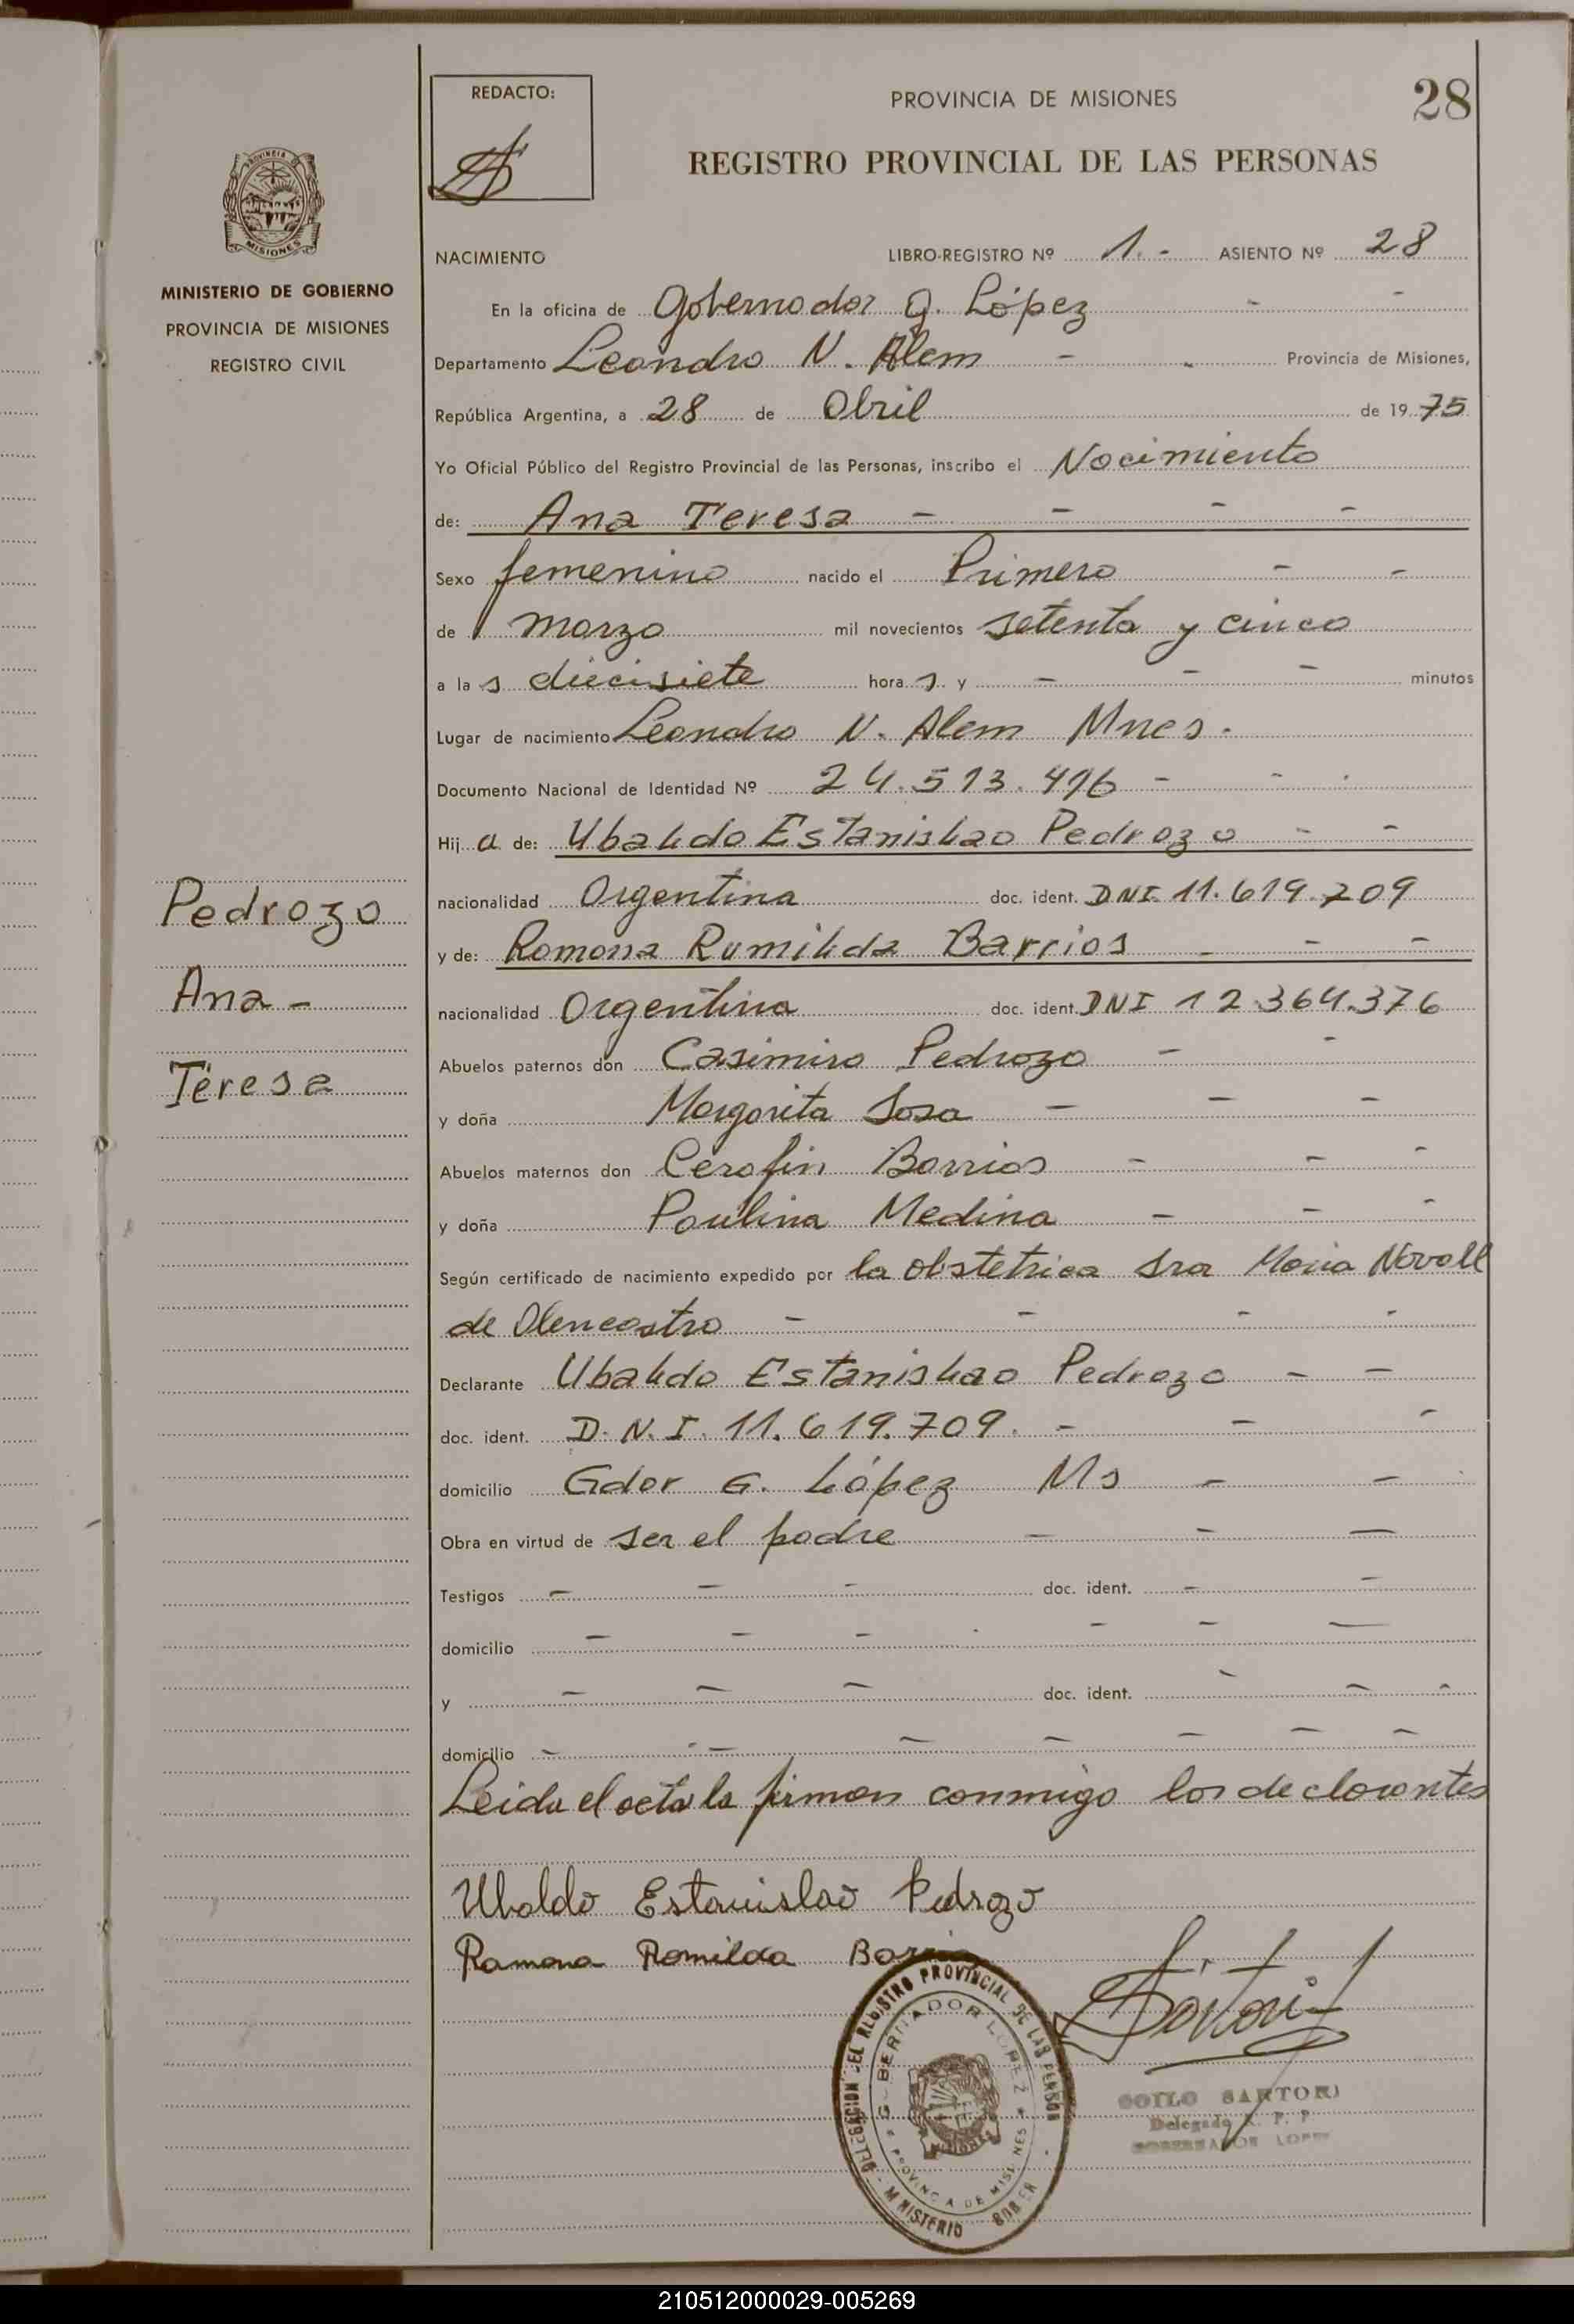 REDACTO:
PROVINCIA DE MISIONES
28
REGISTRO PROVINCIAL DE LAS PERSONAS
PROVINCIA DE
MISIONES
MINISTERIO DE GOBIERNO
PROVINCIA DE MISIONES
REGISTRO CIVIL
NACIMIENTO LIBRO-REGISTRO Nº 1.- ASIENTO Nº 28
En la oficina de Gobernador G. López - -
Departamento Leandro N. Alem - - Provincia de Misiones,
República Argentina, a 28 de Abril de 1975
Yo Oficial Público del Registro Provincial de las Personas, inscribo el Nacimiento
de: Ana Teresa - - - -
Sexo femenino nacido el Primero - -
de marzo mil novecientos setenta y cinco
a las diecisiete horas y - - - minutos
Lugar de nacimiento Leandro N. Alem Mnes.
Documento Nacional de Identidad Nº 24.513.496 - - -
Hija de: Ubaldo Estanislao Pedrozo - -
nacionalidad Argentina doc. ident. DNI. 11.619.709
y de: Ramona Rumilda Barrios - - -
nacionalidad Argentina doc. ident. DNI 12.364.376
Abuelos paternos don Casimiro Pedrozo - -
y doña Margarita Sosa - - -
Abuelos maternos don Cerafin Barrios - - -
y doña Paulina Medina - - -
Según certificado de nacimiento expedido por la obstetrica Sra Maria Novall
de Olencastro - - - -
Declarante Ubaldo Estanislao Pedrozo - -
doc. ident. D.N.I. 11.619.709. - - -
domicilio Gdor G. López Ms - -
Obra en virtud de ser el padre - - -
Testigos - - - doc. ident. - -
domicilio - - - - - -
y - - - doc. ident. - - -
domicilio - - - - - - -
Leida el acta la firman conmigo los declarantes
Ubaldo Estanislao Pedrozo
Ramona Romilda Barrios
Pedrozo
Ana -
Teresa
DELEGACION DEL REGISTRO PROVINCIAL DE LAS PERSON
GOBERNADOR LOPEZ
PROVINCIA DE MISIONES
MINISTERIO GOBER
Sartori
ZOILO SARTORI
Delegado R. P. P.
GOBERNADOR LOPEZ
210512000029-005269